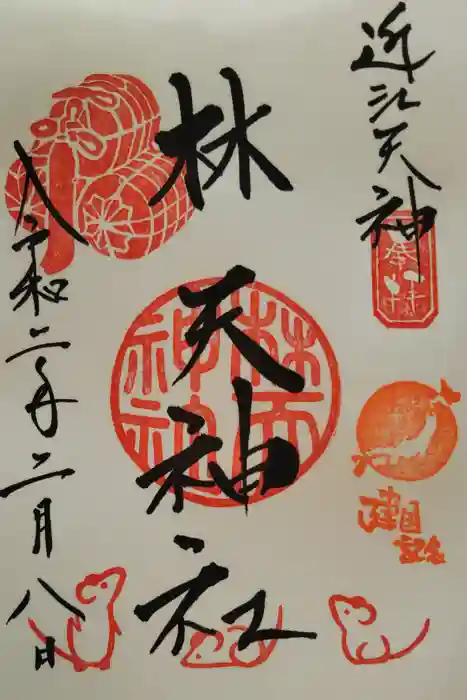 近江天神
奉拝
林天神社
林天神社
建国
記念
令和二年二月八日